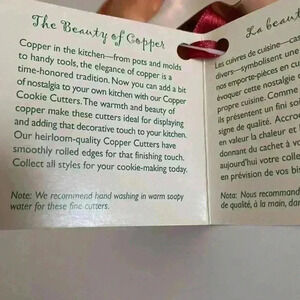 The Beauty of Copper
Copper in the kitchen—from pots and molds
to handy tools, the elegance of copper is a
time-honored tradition. Now you can add a bit
of nostalgia to your own kitchen with our Copper
Cookie Cutters. The warmth and beauty of
copper make these cutters ideal for displaying
and adding that decorative touch to your kitchen.
Our heirloom-quality Copper Cutters have
smoothly rolled edges for that finishing touch.
Collect all styles for your cookie-making today.
Note: We recommend hand washing in warm soapy
water for these fine cutters.
La beauté
Les cuivres de cuisine—cas
divers—symbolisent une
nos emporte-pièces en cu
évoquer cette nostalgie
propre cuisine. Comme
ils présentent un fini se
signe de qualité. Accro
en valeur la chaleur et
donnant du cachet à vo
aujourd'hui votre colle
en prévision de vos bis
Nota: Nous recommand
de qualité, à la main, dan